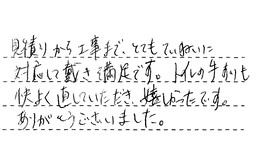 見積りから工事まで、とてもていねいに
対応して戴き満足です。トイレの手すりも
快よく直していただき、嬉しかったです。
ありがとうございました。